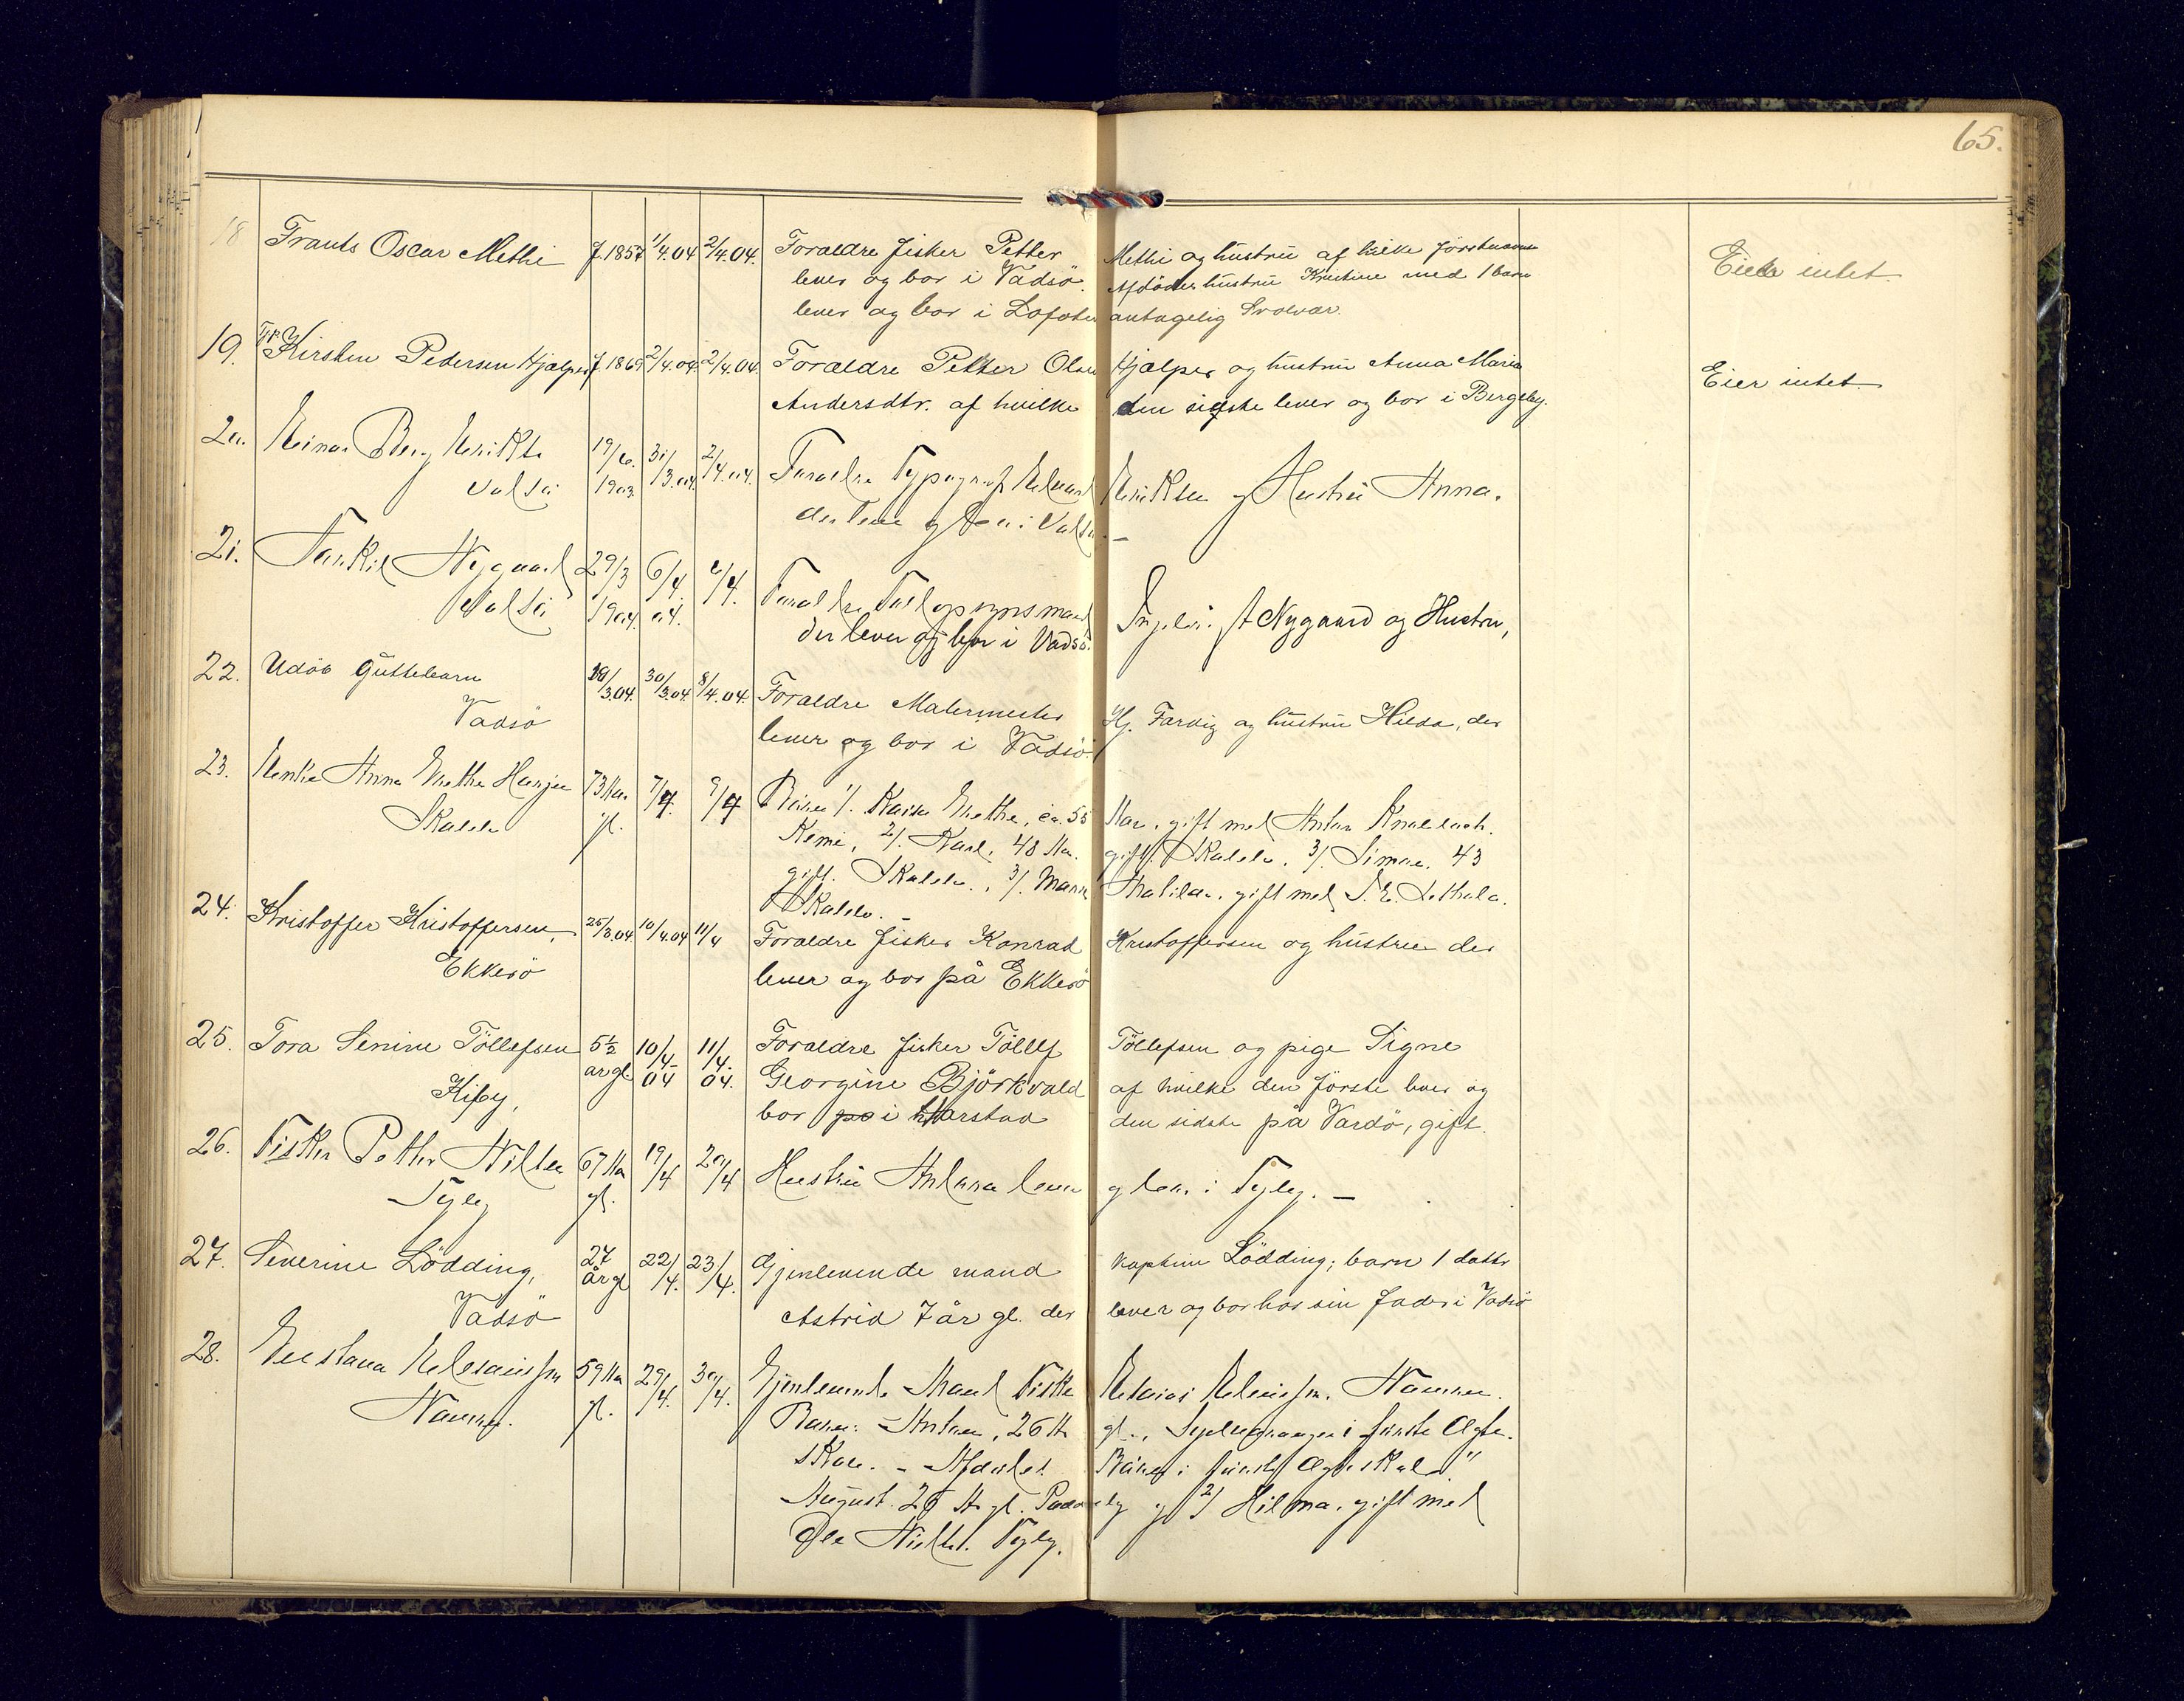 65.
18 Frants Oscar Methi f. 1857 1/4.04 2/4.04. Foraldre fisker Petter Methi og hustru af hvilke førstnævnte Eier intet
lever og bor i Vadsö. Afdödes hustru Kristine med 1 barn
lever og bor i Lofoten antagelig Svolvær.
19. Frk Kirsten Pedersen Hjælper f. 1869 2/4.04. 2/4.04. Foraldre Petter Olsen Hjælper og hustru Anna Maria Eier intet
Andersdtr. af hvilke den sidste lever og bor i Bergeby.
20. Einar Berg Eriksen 19/6. 31/3.04. 2/4.04. Foraldre Typograf Edvard Eriksen og Hustru Anna.
Vadsö 1903 der lever og bor i Vadsö. —
21. Torkil Nygaard 29/3 6/4 6/4. Foraldre Tilopsynsmand Ingebr. A Nygaard og Hustru,
Vadsö 1904 04. der lever og bor i Vadsö.
22. Udöb Guttebarn 30/3.04. 8/4.04. Foraldre Malermester Hj. Farvig og hustru Hilda, der
Vadsö lever og bor i Vadsö.
23. Enke Anna Grethe 73 Aar 7/4. 9/4 Börn 1/. Kaisa Grethe, ca. 55 Aar. gift med Anton
gl. Kemi, 2/. Karl, 48 Aar. gift. 3/. Simon. 43
gift. 3/. Maria Matilda. gift med
24. Kristoffer Kristoffersen, 25/3.04 10/4.04 11/4 Foraldre fisker Konrad Kristoffersen og hustru der
Ekkerö lever og bor på Ekkerö
25. Tora Senine Töllefsen 5½ 10/4- 11/4. Foraldre fisker Töllef Töllefsen og pige Signe
Kiby, år gl. 04 04. Georgine Björkvald af hvilke den förste lever og
bor på i Harstad den sidste på Vardö, gift.
26. Fisker Petter Nilsen 67 Aar 19/4 20/4 Hustru Antona lever og bor i Fyby. —
Fyby gl.
27. Severine Lödding, 27 22/4. 23/4. Gjenlevende mand kaptein Lödding; barn 1 datter
Vadsö år gl Astrid 7 år gl. der lever og bor hos sin fader i Vadsö
28. 59 Aar 29/4. 30/4. Gjenlevende Mand Fisker
gl. Börn: Anton, 26 Aar gl., i første Ægte-
skab. - Afdödes Börn i første Ægteskab
August. Aar gl. og 2/ Hilma. gift med
Ole Fyby.